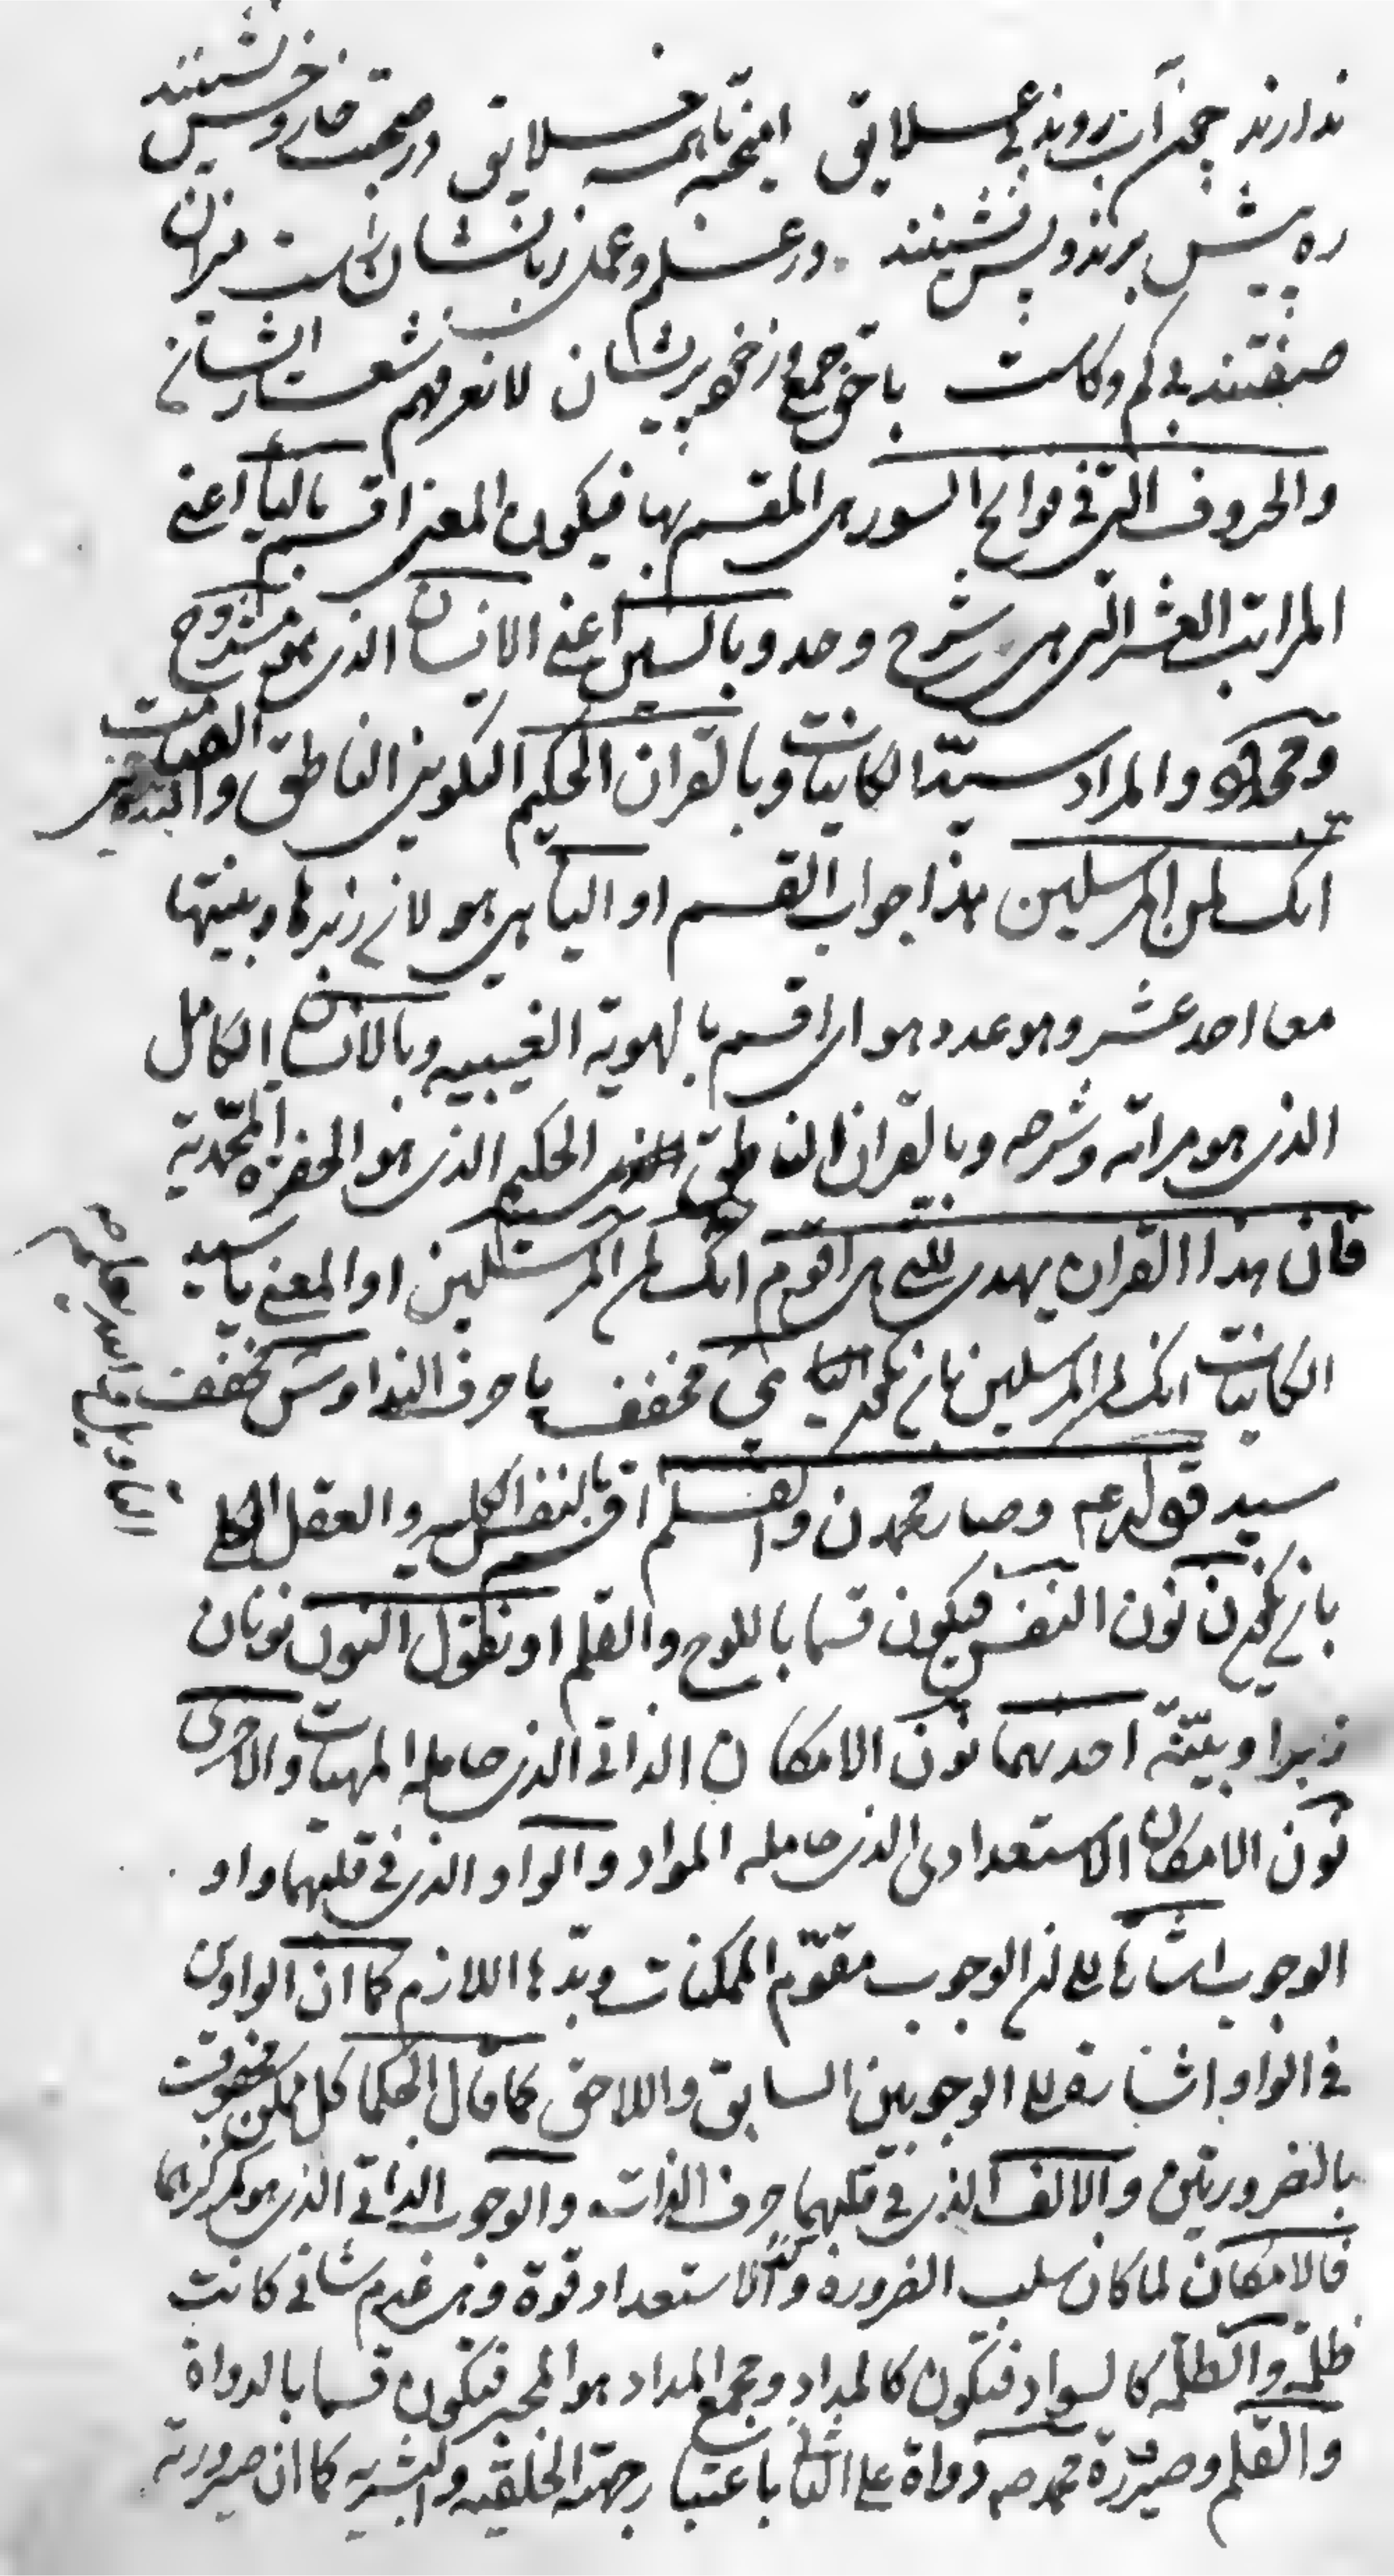 ندارند چون آب روند بی علایق آمیخته با همه خلایق در صحبت خار و خس نشینند
ره پیش برند و پس نشینند در علم و عمل زبانشان راست میزان
صفتند بی کم و کاست با حق جمع و ز خود پریشان لا نعرفهم شعار ایشان
والحروف التی فی فواتح السور هی المقسم بها فیکون المعنی اقسم بالیاء اعنی
المراتب العشر التی هی شرح وحد و بالسین اعنی الانسان الذی هو مشروح
و محمد و المراد سید الکاینات و بالقران الحکیم التکوینی الناطق و الصامت التدوینی
انک لمن المرسلین هذا جواب القسم او الیاء هی هو لان زبرها و بینتها
معا احد عشر و هو عدد هو ای اقسم بالهویة الغیبیه و بالانسان الکامل
الذی هو مراته و شرحه و بالقران الناطق الحکیم الذی هو الحضرة المحمدیة
فان هذا القران یهدی للتی هی اقوم انک لمن المرسلین او المعنی یا سید
الکاینات انک لمن المرسلین بان یکون الیاء مخفف یا حرف الندا و س مخفف
سید قوله ع و صار محمد ن والقلم اقسم بالنفس الکلیه و العقل الکلی
بان یکون ن نون النفس فیکون قسما باللوح والقلم او نقول النون نونان
زبرا و بینة احدیهما نون الامکان الذاتی الذی حامله المهیات والاخری
نون الامکان الاستعدادی الذی حامله المواد والواو الذی فی قلبهما واو
الوجوب اشارة الی ان الوجوب مقوم الممکنات و بدها اللازم کما ان الواوین
فی الواو اشارة الی الوجوبین السابق واللاحق کما قال الحکما کل ممکن محفوف
بالضرورتین والالف الذی فی قلبهما حرف الذات والوجوب الذاتی الذی هو مرکزهما
فالامکان لما کان سلب الضرورة و الاستعداد قوة و هی عدم شانی کانت
ظلمة والظلمة کالسواد فتکون کالمداد و مجمع المداد هو المحبر فتکون قسما بالدواة
والقلم و صیرورة محمد ص دواة علی الثانی باعتبار جهته الخلقیه والبشریه کما ان صیرورته